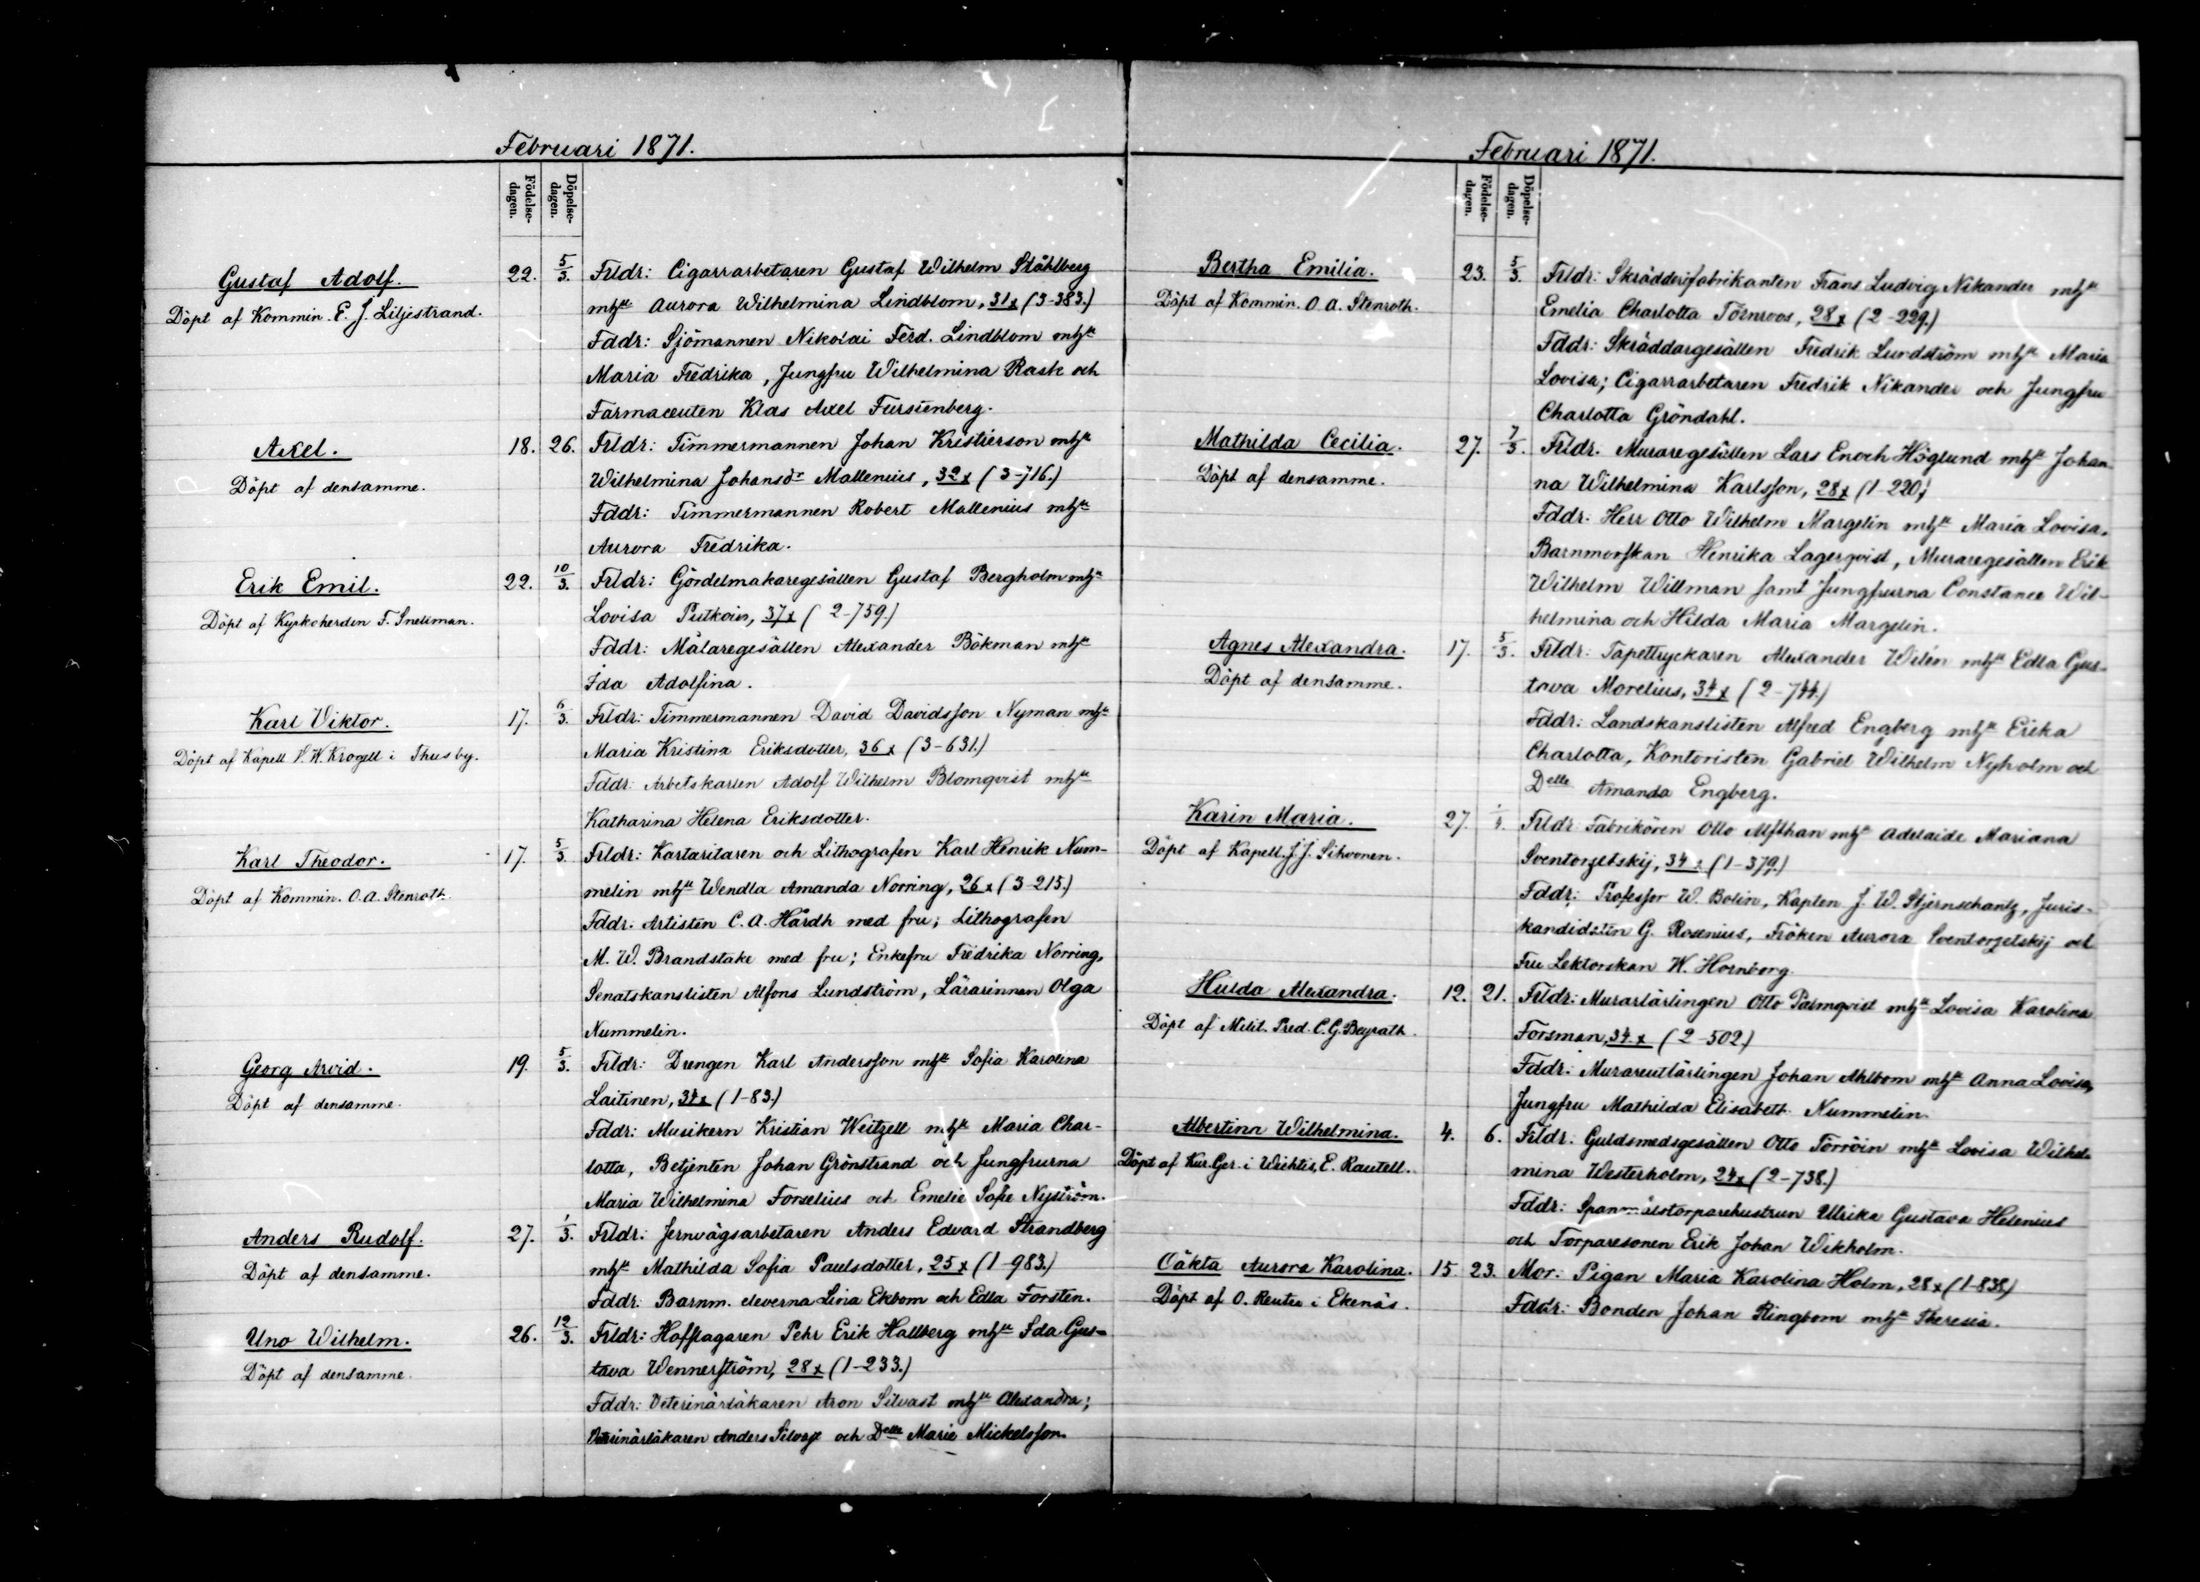 Februari 1871.
Födelse-
dagen.
Döpelse-
dagen.
Gustaf Adolf.
Döpt af Kommin. E. J. Liljestrand.
22.
5/3.
Frldr: Cigarrarbetaren Gustaf Wilhelm Ståhlberg
mhu Aurora Wilhelmina Lindblom, 31x (3-383.)
Fddr: Sjömannen Nikolai Ferd. Lindblom mhu
Maria Fredrika, Jungfru Wilhelmina Rask och
Farmaceuten Klas Axel Fursténberg.
Axel.
Döpt af densamme.
18.
26.
Frldr: Timmermannen Johan Kristierson mhu
Wilhelmina Johansdr Mallenius, 32x (3-716.)
Fddr: Timmermannen Robert Mallenius mhu
Aurora Fredrika.
Erik Emil.
Döpt af Kyrkoherden F. Snellman.
22.
10/3.
Frldr: Gördelmakaregesällen Gustaf Bergholm mhu
Lovisa Putkoin, 37x (2-759.)
Fddr: Målaregesällen Alexander Bökman mhu
Ida Adolfina.
Karl Viktor.
Döpt af Kapell V. W. Krogell i Thusby.
17.
6/3.
Frldr: Timmermannen David Davidsson Nyman mhu
Maria Kristina Eriksdotter, 36x (3-631.)
Fddr: Arbetskarlen Adolf Wilhelm Blomqvist mhu
Katharina Helena Eriksdotter.
Karl Theodor.
Döpt af Kommin. O. A. Stenroth.
17.
5/3.
Frldr: Kartaritaren och Lithografen Karl Henrik Num-
melin mhu Wendla Amanda Norring, 26x (3-215.)
Fddr. Artisten C. A. Hårdh med fru; Lithografen
M. W. Brandstake med fru; Enkefru Fredrika Norring,
Senatskanslisten Alfons Lundström, Lärarinnan Olga
Nummelin.
Georg Arvid.
Döpt af densamme.
19.
5/3.
Frldr: Drengen Karl Andersson mhu Sofia Karolina
Laitinen, 34x (1-83.)
Fddr: Musikern Kristian Weitzell mhu Maria Char-
lotta, Betjenten Johan Grönstrand och Jungfrurna
Maria Wilhelmina Forselius och Emelie Sofie Nyström.
Anders Rudolf.
Döpt af densamme.
27.
1/3.
Frldr: Jernvägsarbetaren Anders Edvard Strandberg
mhu Mathilda Sofia Paulsdotter, 25x (1-983.)
Fddr: Barnm. eleverna Lina Ekbom och Edla Forsten.
Uno Wilhelm.
Döpt af densamme.
26.
12/3.
Frldr: Hofslagaren Pehr Erik Hallberg mhu Ida Gus-
tava Wennerström, 28x (1-233.)
Fddr: Veterinärläkaren Aron Silvast mhu Alexandra;
Veterinärläkaren Anders Silvast och Delle Marie Mickelsson.
Februari 1871.
Födelse-
dagen.
Döpelse-
dagen.
Bertha Emilia.
Döpt af Kommin. O. A. Stenroth.
23.
5/3.
Frldr: Skrädderifabrikanten Frans Ludvig Nikander mhu
Emelia Charlotta Törnroos, 28x (2-229.)
Fddr: Skräddargesällen Fredrik Lundström mhu Maria
Lovisa; Cigarrarbetaren Fredrik Nikander och Jungfru
Charlotta Gröndahl.
Mathilda Cecilia.
Döpt af densamme.
27.
7/3.
Frldr. Muraregesällen Lars Enoch Höglund mhu Johan-
na Wilhelmina Karlsson, 28x (1-220,)
Fddr. Herr Otto Wilhelm Margelin mhu Maria Lovisa,
Barnmorskan Henrika Lagerqvist, Muraregesällen Erik
Wilhelm Willman samt Jungfrurna Constance Wil-
helmina och Hilda Maria Margelin.
Agnes Alexandra.
Döpt af densamme.
17.
5/3.
Frldr: Tapettryckaren Alexander Wilén mhu Edla Gus-
tava Morelius, 34x (2-744.)
Fddr: Landskanslisten Alfred Engberg mhu Erika
Charlotta, Kontoristen Gabriel Wilhelm Nyholm och
Delle Amanda Engberg.
Karin Maria.
Döpt af Kapell. J. J. Sihvonen.
27.
1/4.
Frldr Fabrikören Otto Alfthan mhu Adelaide Mariana
Sventorzetskij, 34x (1-379.)
Fddr: Professor W. Bolin, Kapten J. W. Stjernschantz, Juris-
kandidaten G. Rosenius, Fröken Aurora Sventorzetskij och
Fru Lektorskan W. Hornborg.
Hulda Alexandra.
Döpt af Milit. Pred. C. G. Beyrath.
12.
21.
Frldr: Murarlärlingen Otto Palmqvist mhu Lovisa Karolina
Forsman, 34x (2-502.)
Fddr: Murareutlärlingen Johan Ahlbom mhu Anna Lovisa,
Jungfru Mathilda Elisabeth Nummelin.
Albertina Wilhelmina.
Döpt af Kur. Ger. i Wichtis, E. Rautell.
4.
6.
Frldr. Guldsmedsgesällen Otto Törröin mhu Lovisa Wilhel-
mina Westerholm, 24x (2-738.)
Fddr: Ullrika Gustava Helenius
och Torparesonen Erik Johan Wikholm.
Oäkta Aurora Karolina.
Döpt af O. Reuter i Ekenäs.
15
23.
Mor: Pigan Maria Karolina Holm, 28x (1-838.)
Fddr: Bonden Johan Ringbom mhu Theresia.